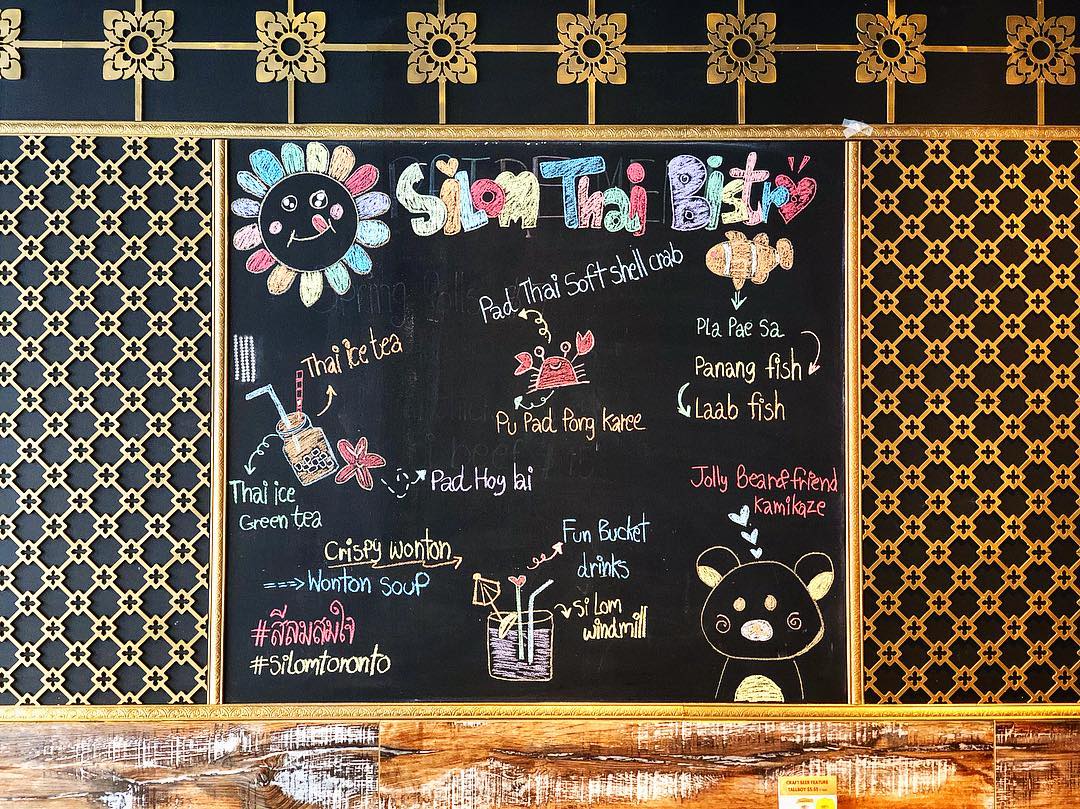 Silom Thai Bistro
Pad Thai Soft shell crab
Pla Pae Sa
Panang fish
Laab fish
Thai ice tea
Pu Pad Pong Karee
Thai ice
Green tea
Pad Hoy lai
Jolly Bear & friend
Kamikaze
Crispy wonton
Wonton soup
Fun Bucket
drinks
Si Lom
windmill
#สีลมสมใจ
#silomtoronto
CRAFT BEER FEATURE